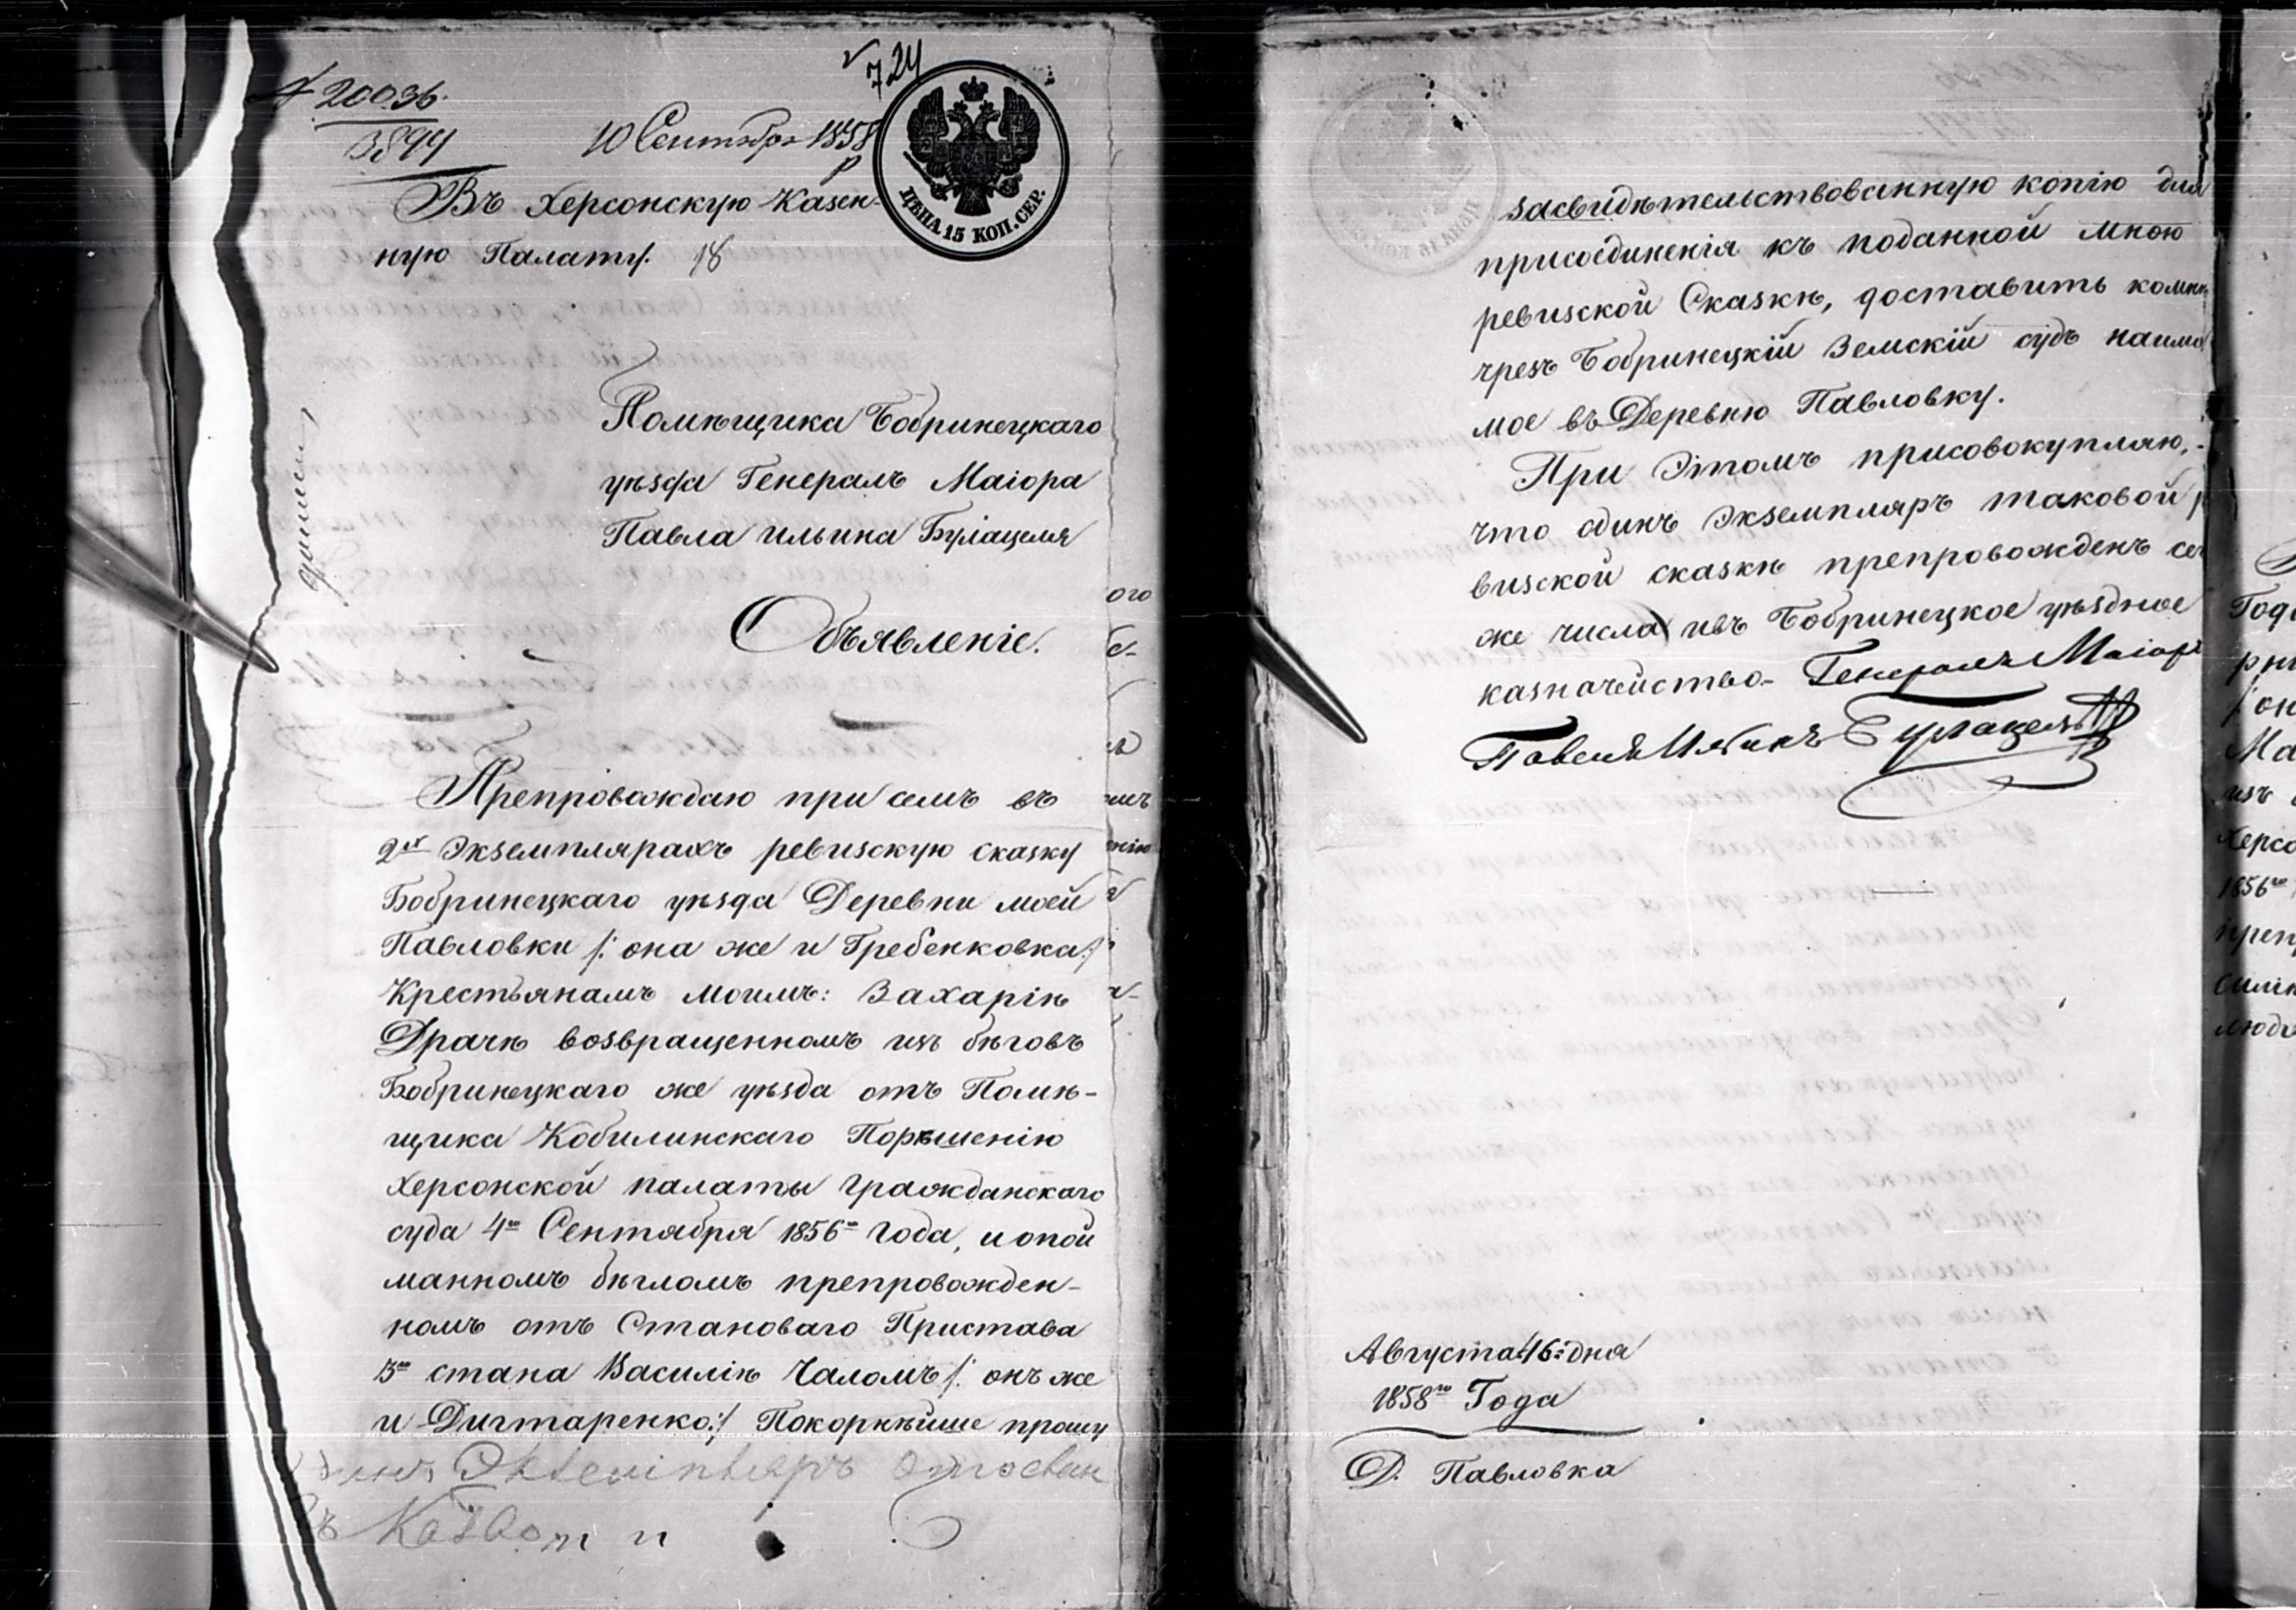 № 20036.
3894
724
10 Сентября 1858
ЦѢНА 15 КОП. СЕР.
Въ Херсонскую Казен-
ную Палату. 18
Помѣщика Бобринецкаго
уѣзда Генералъ Маіора
Павла Ильина Булацеля
Объявленіе.
Препровождаю при семъ въ
2хъ Экземплярахъ ревизскую сказку
Бобринецкаго уѣзда Деревни моей
Павловки /: она же и Гребенковка :/
Крестьянамъ моимъ: Захарію
Драчѣ возвращенномъ изъ бѣговъ
Бобринецкаго же уѣзда отъ Помѣ-
щика Кобилинскаго Порѣшенію
Херсонской палаты Гражданскаго
суда 4го Сентября 1856го года, и опой
манномъ бѣгломъ препровожден-
номъ отъ Становаго Пристава
3го стана Василію Чаломъ /: онъ же
и Дигтаренко :/ Покорнѣйше прошу
Экземпляръ
засвидѣтельствованную копію для
присоединенія къ поданной мною
ревизской Сказкѣ, доставить комнѣ
чрезъ Бобринецкій Земскій судъ наимя
мое въ Деревню Павловку.
При Этомъ присовокупляю,
что одинъ Экземпляръ таковой р
визской сказкѣ препровожденъ се
же числа ивъ Бобринецкое уѣздное
казначейство - Генералъ Маіоръ
Павелъ Ильинъ Булацель
Августа 16 дня
1858го Года
Д. Павловка